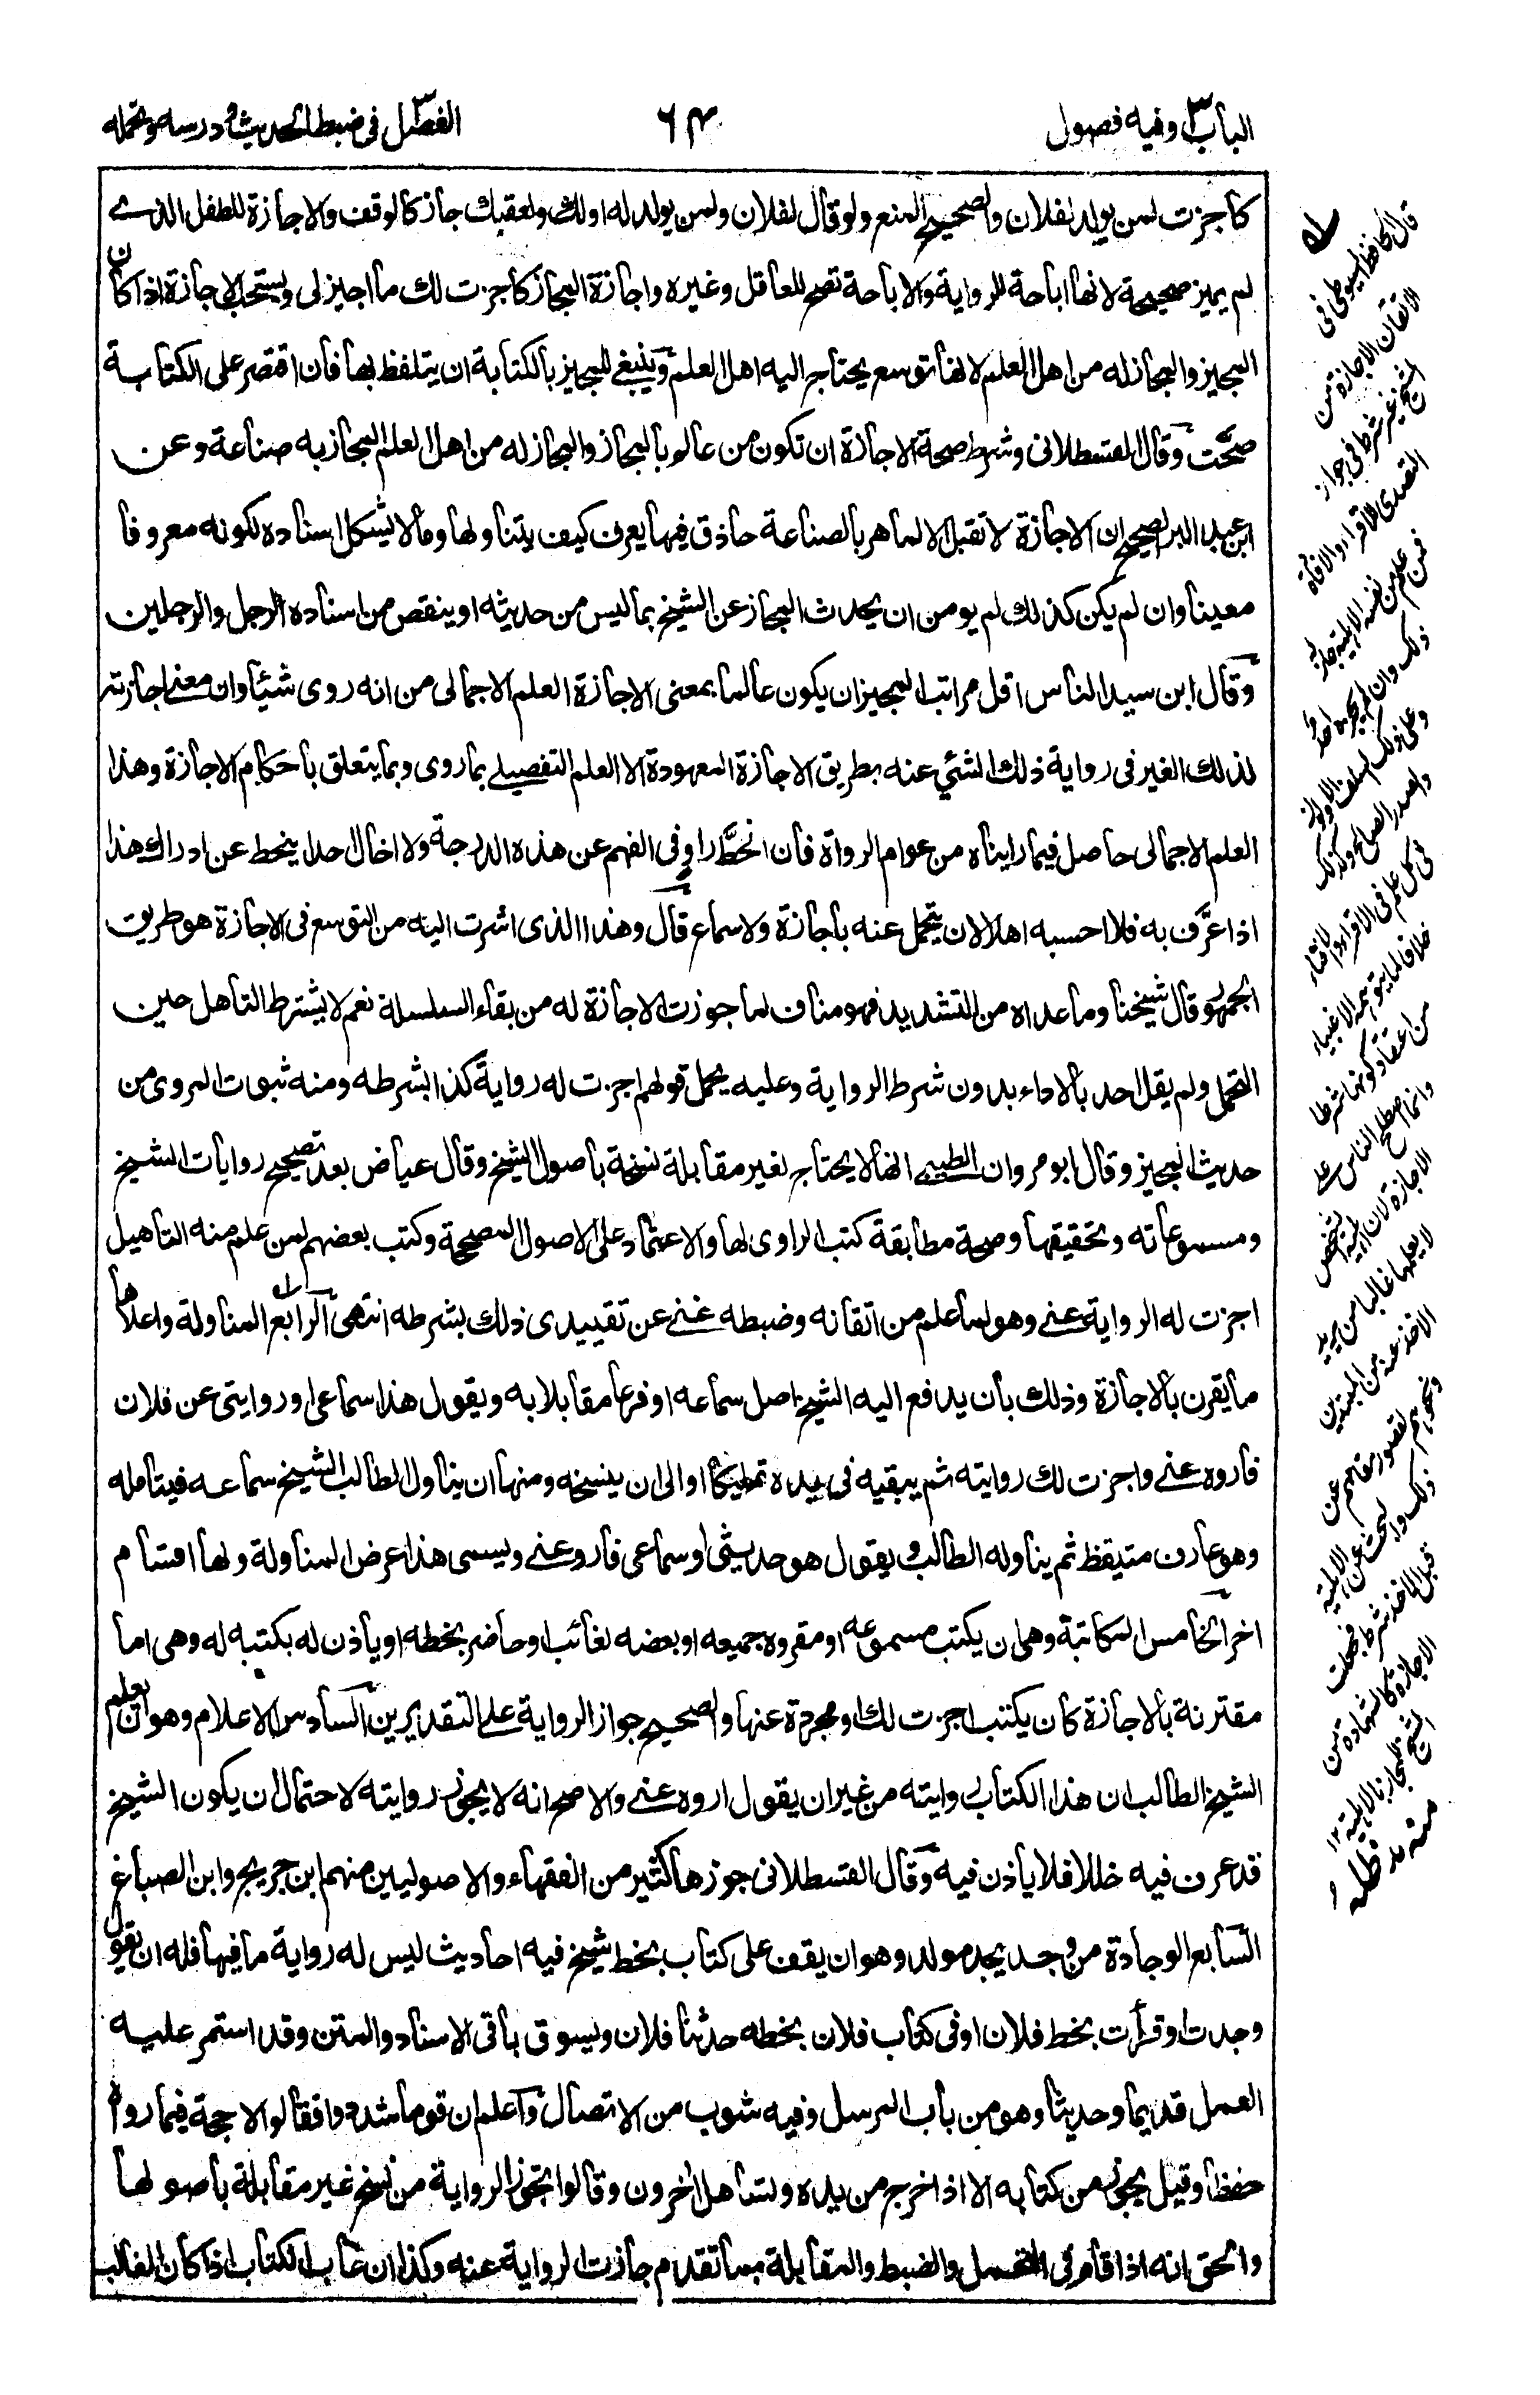 الباب ٣ وفيه فصول
٦٤
الفصل ٣ فى ضبط الحديث و درسه وتحمله
كاجزت لمن يولد لفلان والصحيح المنع ولو قال لفلان ولمن يولد له او لك ولعقبك جاز كالوقف والاجازة للطفل الذے
لم يميز صحيحة لانها اباحة للرواية والاباحة تصح للعاقل وغيره واجازة المجاز كاجزت لك ما اجيز لى ويستحب الاجازة اذا كان
المجيز والمجاز له من اهل العلم لانها توسع يحتاج اليه اهل العلم وينبغى للمجيز بالكتابة ان يتلفظ بها فان اقتصر على الكتابة
صحّت وقال القسطلانى وشرط صحة الاجازة ان تكون من عالم بالمجاز والمجاز له من اهل العلم المجاز به صناعة وعن
ابن عبد البر الصحيح ان الاجازة لا تقبل الا لماهر بالصناعة حاذق فيها يعرف كيف يتناولها وما لا يشكل اسناده لكونه معروفا
معينا وان لم يكن كذلك لم يومن ان يحدث المجاز عن الشيخ بما ليس من حديثه او ينقص من اسناده الرجل والرجلين
وقال ابن سيد الناس اقل مراتب المجيز ان يكون عالما بمعنى الاجازة العلم الاجمالى من انه روى شيئا وان معنے اجازته
لذلك الغير فى رواية ذلك الشئي عنه بطريق الاجازة المعهودة لا العلم التفصيلے بما روى وبما يتعلق باحكام الاجازة وهذا
العلم الاجمالى حاصل فيما رايناه من عوام الرواة فان انحطّ راوٍ فى الفهم عن هذه الدرجة ولا اخال احدا ينحط عن ادراك هذا
اذا عرّف به فلا احسبه اهلا لان يتحمل عنه باجازة ولا سماع قال وهذا الذى اشرت اليه من التوسع فى الاجازة هو طريق
الجمهور قال شيخنا وما عداه من التشديد فهو مناف لما جوزت الاجازة له من بقاء السلسلة نعم لا يشترط التأهل حين
التحمل ولم يقل احد بالاداء بدون شرط الرواية وعليه يحمل قولهم اجزت له رواية كذا بشرطه ومنه ثبوت المروى من
حديث المجيز وقال ابو مروان الطيبى انها لا يحتاج لغير مقابلة نسخة باصول الشيخ وقال عياض بعد تصحيح روايات الشيخ
ومسموعاته وتحقيقها وصحة مطابقة كتب الراوى لها والاعتماد على الاصول المصححة وكتب بعضهم لمن علم منه التاهيل
اجزت له الرواية عنے وهو لما علم من اتقانه وضبطه غنے عن تقييدى ذلك بشرطه انتهى الرابع المناولة واعلاها
ما يقرن بالاجازة وذلك بان يدفع اليه الشيخ اصل سماعه او فرعا مقابلا به ويقول هذا سماعى او روايتى عن فلان
فاروه عنے واجزت لك روايته ثم يبقيه فى يده تمليكا او الى ان ينسخه ومنها ان يناول الطالب الشيخ سماعه فيتامله
وهو عارف متيقظ ثم يناوله الطالب ويقول هو حديثى او سماعى فارو عنے ويسمى هذا عرض المناولة ولها اقسام
اخر الخامس المكاتبة وهى ان يكتب مسموعه او مقروه جميعه او بعضه لغائب او حاضر بخطه او ياذن له بكتبه له وهى اما
مقترنة بالاجازة كان يكتب اجزت لك او مجردة عنها والصحيح جواز الرواية علے التقديرين السادس الاعلام وهو ان يعلم
الشيخ الطالب ان هذا الكتاب روايته من غير ان يقول اروه عنے والاصح انه لا يجوز روايته لاحتمال ان يكون الشيخ
قد عرف فيه خللا فلا ياذن فيه وقال القسطلانى جوزها كثير من الفقهاء والاصوليين منهم ابن جريج وابن الصباغ
السابع الوجادة من وجد يجد مولد وهو ان يقف على كتاب بخط شيخ فيه احاديث ليس له رواية ما فيها فله ان يقول
وجدت او قرأت بخط فلان او فى كتاب فلان بخطه حدثنا فلان ويسوق باقى الاسناد والمتن وقد استمر عليه
العمل قديما وحديثا وهو من باب المرسل وفيه شوب من الاتصال واعلم ان قوما شددوا فقالوا لا حجة فيما رواه
حفظا وقيل يجوز من كتابه الا اذا خرج من يده وتساهل اخرون وقالوا تجوز الرواية من نسخ غير مقابلة باصولها
والحق انه اذا قام فى التحمل والضبط والمقابلة بما تقدم جازت الرواية عنه وكذا ان غاب الكتاب اذا كان الغالب
قال الحافظ السيوطى فى
الاتقان الاجازة من
الشيخ غير شرط فى جواز
التصدى للاقراء والافادة
فمن علم من نفسه الاهلية جاز له
ذلك وان لم يجزه احد
وعلى ذلك السلف الاولون
والصدر الصالح وكذلك
فى كل علم وفى الاقراء والافتاء
خلافا لما يتوهمه الاغبياء
من اعتقاد كونها شرطا
وانما اصطلح الناس على
الاجازة لان اهلية الشخص
لا يعلمها غالبا من يريد
الاخذ عنه من المبتدئين
ونحوهم لقصور مقامهم عن
ذلك والبحث عن الاهلية
قبل الاخذ شرط فجعلت
الاجازة كالشهادة من
الشيخ للمجاز بالاهلية ١٢
منه مد ظله